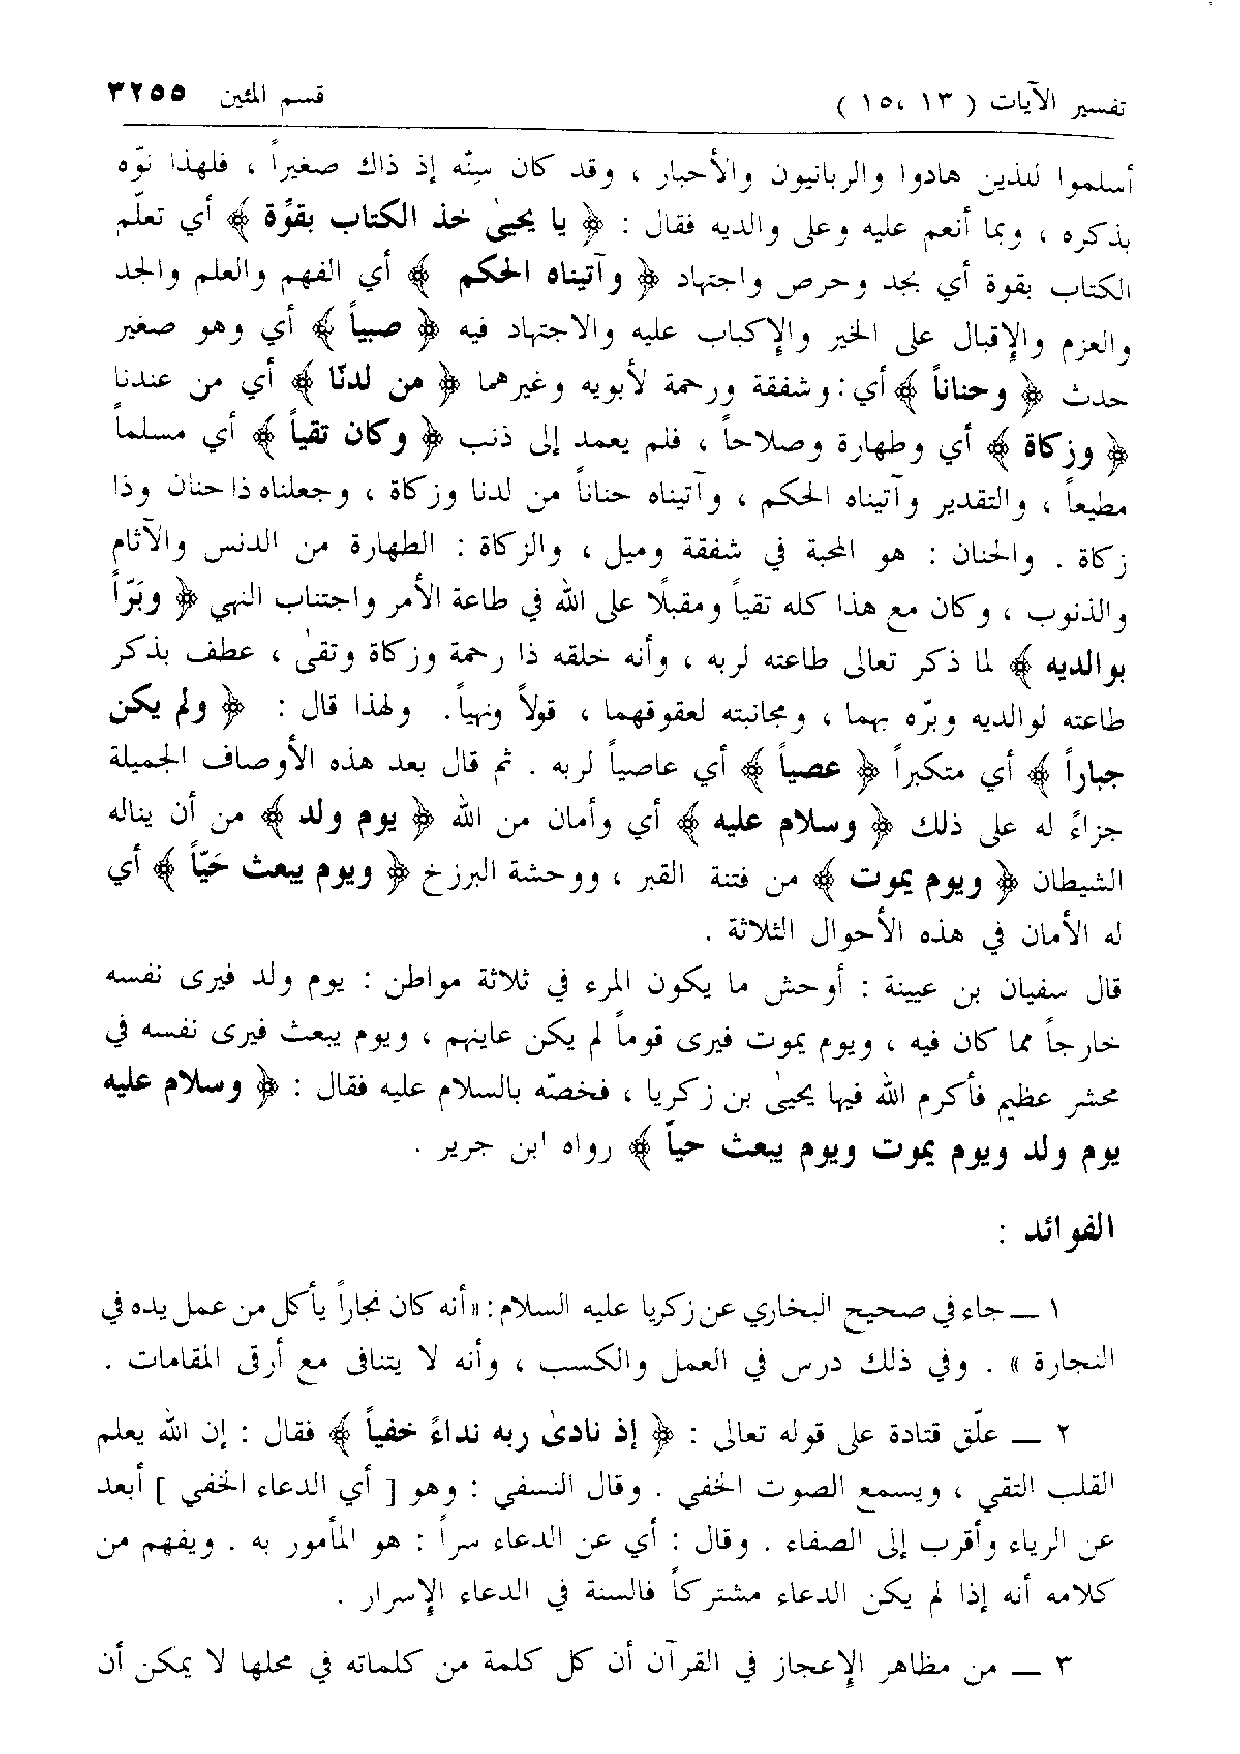 تفسير الآيات ( ١٣ ،١٥ ) قسم المئين ٣٢٥٥
أسلموا للذين هادوا والربانيون والأحبار ، وقد كان سِنّه إذ ذاك صغيراً ، فلهذا نوّه
بذكره ، وبما أنعم عليه وعلى والديه فقال : ﴿ يا يحيىٰ خذ الكتاب بقوَّة ﴾ أي تعلّم
الكتاب بقوة أي بجد وحرص واجتهاد ﴿ وآتيناه الحكم ﴾ أي الفهم والعلم والجد
والعزم والإقبال على الخير والإكباب عليه والاجتهاد فيه ﴿ صبياً ﴾ أي وهو صغير
حدث ﴿ وحناناً ﴾ أي : وشفقة ورحمة لأبويه وغيرهما ﴿ من لدنّا ﴾ أي من عندنا
﴿ وزكاة ﴾ أي وطهارة وصلاحاً ، فلم يعمد إلى ذنب ﴿ وكان تقياً ﴾ أي مسلماً
مطيعاً ، والتقدير وآتيناه الحكم ، وآتيناه حناناً من لدنا وزكاة ، وجعلناه ذا حنان وذا
زكاة . والحنان : هو المحبة في شفقة وميل ، والزكاة : الطهارة من الدنس والآثام
والذنوب ، وكان مع هذا كله تقياً ومقبلاً على الله في طاعة الأمر واجتناب النهي ﴿ وبَرّاً
بوالديه ﴾ لما ذكر تعالى طاعته لربه ، وأنه خلقه ذا رحمة وزكاة وتقىٰ ، عطف بذكر
طاعته لوالديه وبرّه بهما ، ومجانبته لعقوقهما ، قولاً ونهياً . ولهذا قال : ﴿ ولم يكن
جباراً ﴾ أي متكبراً ﴿ عصياً ﴾ أي عاصياً لربه . ثم قال بعد هذه الأوصاف الجميلة
جزاءً له على ذلك ﴿ وسلام عليه ﴾ أي وأمان من الله ﴿ يوم ولد ﴾ من أن يناله
الشيطان ﴿ ويوم يموت ﴾ من فتنة القبر ، ووحشة البرزخ ﴿ ويوم يبعث حَيّاً ﴾ أي
له الأمان في هذه الأحوال الثلاثة .
قال سفيان بن عيينة : أوحش ما يكون المرء في ثلاثة مواطن : يوم ولد فيرى نفسه
خارجاً مما كان فيه ، ويوم يموت فيرى قوماً لم يكن عاينهم ، ويوم يبعث فيرى نفسه في
محشر عظيم فأكرم الله فيها يحيىٰ بن زكريا ، فخصّه بالسلام عليه فقال : ﴿ وسلام عليه
يوم ولد ويوم يموت ويوم يبعث حياً ﴾ رواه ابن جرير .
الفوائد :
١ ــ جاء في صحيح البخاري عن زكريا عليه السلام : « أنه كان نجاراً يأكل من عمل يده في
النجارة » . وفي ذلك درس في العمل والكسب ، وأنه لا يتنافى مع أرقى المقامات .
٢ ــ علّق قتادة على قوله تعالى : ﴿ إذ نادىٰ ربه نداءً خفياً ﴾ فقال : إن الله يعلم
القلب التقي ، ويسمع الصوت الخفي . وقال النسفي : وهو [ أي الدعاء الخفي ] أبعد
عن الرياء وأقرب إلى الصفاء . وقال : أي عن الدعاء سراً : هو المأمور به . ويفهم من
كلامه أنه إذا لم يكن الدعاء مشتركاً فالسنة في الدعاء الإسرار .
٣ ــ من مظاهر الإعجاز في القرآن أن كل كلمة من كلماته في محلها لا يمكن أن